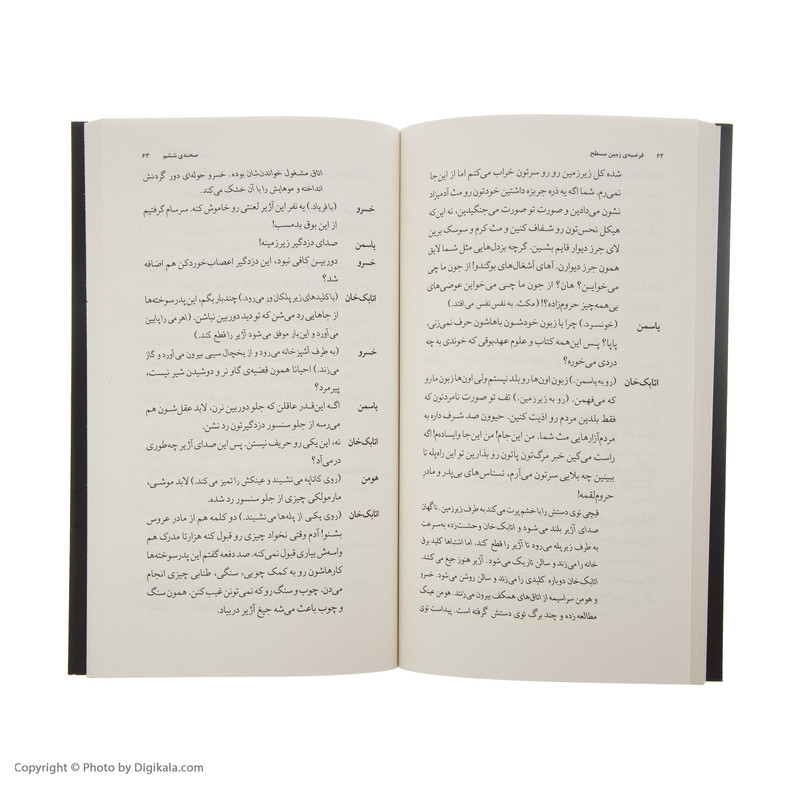 ۶۲ فرضیه‌ی زمین مسطح
شده کل زیرزمین رو رو سرتون خراب می‌کنم اما از این‌جا
نمی‌رم. شما اگه یه ذره جربزه داشتین خودتون رو مث آدمیزاد
نشون می‌دادین و صورت تو صورت می‌جنگیدین، نه این‌که
هیکل نحس‌تون رو شفاف کنین و مث کرم و سوسک برین
لای جرز دیوار قایم بشین. گرچه بزدل‌هایی مثل شما لایق
همون جرز دیوارن. آهای آشغال‌های بوگندو! از جون ما چی
می‌خواین؟ هان؟ از جون ما چی می‌خواین عوضی‌های
بی‌همه‌چیز حروم‌زاده؟! (مکث. به نفس نفس می‌افتد.)
یاسمن (خونسرد.) چرا با زبون خودشون باهاشون حرف نمی‌زنی،
پاپا؟ پس این‌همه کتاب و علوم عهدبوقی که خوندی به چه
دردی می‌خوره؟
اتابک‌خان (رو به یاسمن.) زبون اون‌ها رو بلد نیستم ولی اون‌ها زبون ما رو
که می‌فهمن. (رو به زیرزمین.) تف تو صورت نامردتون که
فقط بلدین مردم رو اذیت کنین. حیوون صد شرف داره به
مردم‌آزارهایی مث شما. من این‌جام! من این‌جا وایساده‌م! اگه
راست می‌گین خبر مرگ‌تون پاتون رو بذارین تو این راه‌پله تا
ببینین چه بلایی سرتون می‌آرم، نسناس‌های بی‌پدر و مادرِ
حروم‌لقمه!
قیچی توی دستش را با خشم پرت می‌کند به طرف زیرزمین. ناگهان
صدای آژیر بلند می‌شود و اتابک‌خان وحشت‌زده به‌سرعت
به طرف زیرپله می‌رود تا آژیر را قطع کند. اما اشتباها کلید برق
خانه را می‌زند و سالن تاریک می‌شود. آژیر هنوز جیغ می‌کشد.
اتابک‌خان دوباره کلیدی را می‌زند و سالن روشن می‌شود. خسرو
و هومن سراسیمه از اتاق‌های همکف بیرون می‌زنند. هومن عینک
مطالعه زده و چند برگ توی دستش گرفته است. پیداست توی
صحنه‌ی ششم ۶۳
اتاق مشغول خواندن‌شان بوده. خسرو حوله‌ای دور گردنش
انداخته و موهایش را با آن خشک می‌کند.
خسرو (با فریاد.) یه نفر این آژیر لعنتی رو خاموش کنه. سرسام گرفتیم
از این بوق بدمسب!
یاسمن صدای دزدگیر زیرزمینه!
خسرو دوربین کافی نبود، این دزدگیر اعصاب‌خوردکن هم اضافه
شد؟
اتابک‌خان (با کلیدهای زیر پلکان ور می‌رود.) چندبار بگم، این پدرسوخته‌ها
از جاهایی رد می‌شن که تو دید دوربین نباشن. (اهرمی را پایین
می‌آورد و این‌بار موفق می‌شود آژیر را قطع کند.)
خسرو (به طرف آشپزخانه می‌رود و از یخچال سیبی بیرون می‌آورد و گاز
می‌زند.) احیانا همون قضیه‌ی گاو نر و دوشیدن شیر نیست،
پیرمرد؟
یاسمن اگه این‌قدر عاقلن که جلو دوربین نرن، لابد عقل‌شون هم
می‌رسه از جلو سنسور دزدگیرتون رد نشن.
اتابک‌خان نه، این یکی رو حریف نیستن. پس این صدای آژیر چه‌طوری
درمی‌آد؟
هومن (روی کاناپه می‌نشیند و عینکش را تمیز می‌کند.) لابد موشی،
مارمولکی چیزی از جلو سنسور رد شده.
اتابک‌خان (روی یکی از پله‌ها می‌نشیند.) دو کلمه هم از مادر عروس
بشنو! آدم وقتی نخواد چیزی رو قبول کنه هزارتا مدرک هم
واسه‌ش بیاری قبول نمی‌کنه. صد دفعه گفتم این پدرسوخته‌ها
کارهاشون رو به کمک چوبی، سنگی، طنابی چیزی انجام
می‌دن. چوب و سنگ رو که نمی‌تونن غیب کنن. همون سنگ
و چوب باعث می‌شه جیغ آژیر دربیاد.
Copyright © Photo by Digikala.com